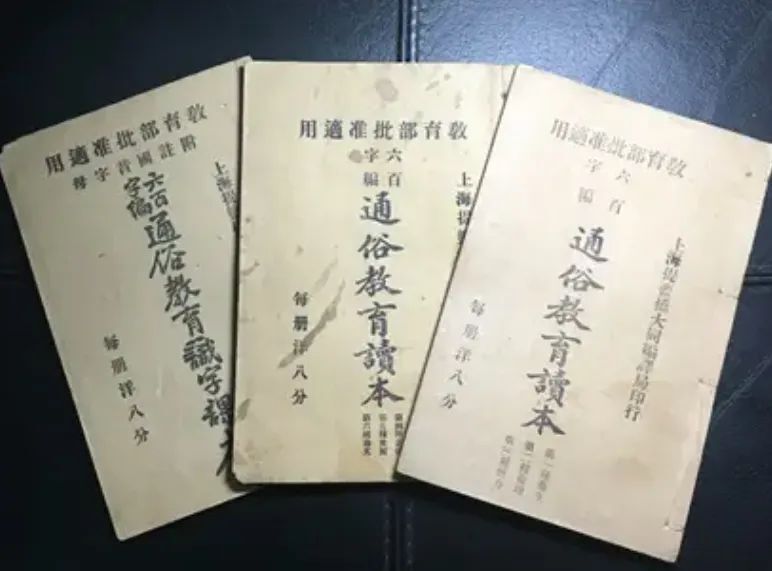 教育部批准適用
附註國音字母
六百字編
通俗教育識字課本
每册洋八分
教育部批准適用
六百字編
通俗教育讀本
每册洋八分
教育部批准適用
六百字編
上海 大同編譯局印行
通俗教育讀本
每册洋八分